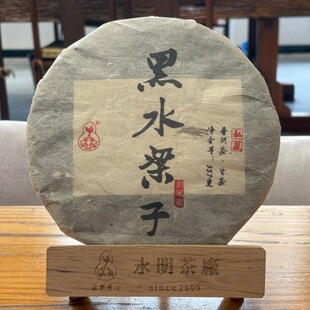 黑水梁子
私藏
普洱茶、生茶
净含量:357克
永明茶廠
永明核心
since2009